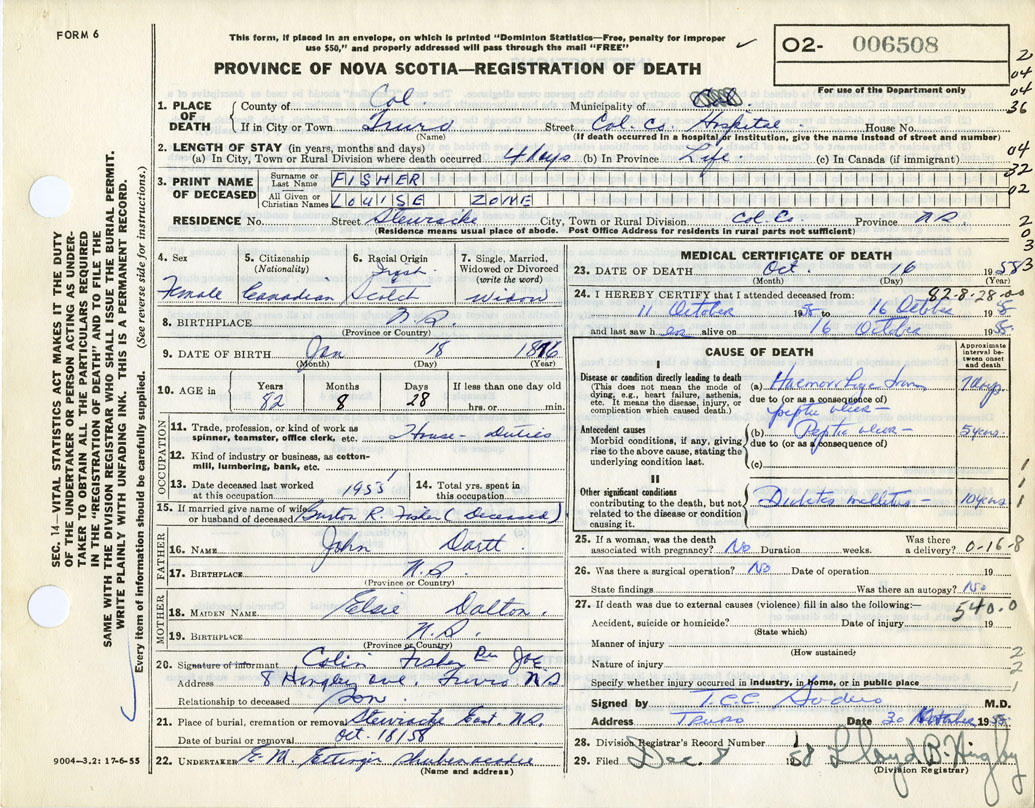 FORM 6
This form, if placed in an envelope, on which is printed "Dominion Statistics—Free, penalty for improper
use $50," and properly addressed will pass through the mail "FREE"
✓
PROVINCE OF NOVA SCOTIA—REGISTRATION OF DEATH
O2- 006508
For use of the Department only
2
04
04
36
04
32
02
2
0
3
SEC. 14—VITAL STATISTICS ACT MAKES IT THE DUTY
OF THE UNDERTAKER OR PERSON ACTING AS UNDER-
TAKER TO OBTAIN ALL THE PARTICULARS REQUIRED
IN THE "REGISTRATION OF DEATH" AND TO FILE THE
SAME WITH THE DIVISION REGISTRAR WHO SHALL ISSUE THE BURIAL PERMIT.
WRITE PLAINLY WITH UNFADING INK. THIS IS A PERMANENT RECORD.
Every item of information should be carefully supplied. (See reverse side for instructions.)
1. PLACE OF DEATH
County of Col. Municipality of Col.
If in City or Town Truro Street Col. Co. Hospital House No.
(Name) (If death occurred in a hospital or institution, give the name instead of street and number)
2. LENGTH OF STAY (in years, months and days)
(a) In City, Town or Rural Division where death occurred 4 days (b) In Province Life. (c) In Canada (if immigrant)
3. PRINT NAME OF DECEASED
Surname or Last Name FISHER
All Given or Christian Names LOUISE ZONE
RESIDENCE No. Street Stewiacke City, Town or Rural Division Col. Co. Province N.S.
(Residence means usual place of abode. Post Office Address for residents in rural parts not sufficient)
4. Sex 5. Citizenship (Nationality) 6. Racial Origin 7. Single, Married, Widowed or Divorced (write the word)
Female Canadian Scotch Widow
8. BIRTHPLACE N.S.
(Province or Country)
9. DATE OF BIRTH Jan 18 1876
(Month) (Day) (Year)
10. AGE in Years Months Days If less than one day old
82 8 28 hrs. or min.
OCCUPATION
11. Trade, profession, or kind of work as spinner, teamster, office clerk, etc. House-duties
12. Kind of industry or business, as cotton-mill, lumbering, bank, etc.
13. Date deceased last worked at this occupation 1955
14. Total yrs. spent in this occupation
15. If married give name of wife or husband of deceased Burton R. Fisher (Deceased)
FATHER
16. NAME John Dartt
17. BIRTHPLACE N.S.
(Province or Country)
MOTHER
18. MAIDEN NAME Elsie Dalton.
19. BIRTHPLACE N.S.
(Province or Country)
20. Signature of informant Colin Fisher Per
Address 8 Hingley ave. Truro N.S
Relationship to deceased Son
21. Place of burial, cremation or removal Stewiacke East. N.S.
Date of burial or removal Oct. 18/58
22. UNDERTAKER E. M. Ettinger Shubenacadie
(Name and address)
9004—3.2: 17-6-55
MEDICAL CERTIFICATE OF DEATH
23. DATE OF DEATH Oct. 16 1958
(Month) (Day) (Year)
3
24. I HEREBY CERTIFY that I attended deceased from: 82-8-28-00
11 October 1958 to 16 October 1958
and last saw her alive on 16 October 1958
CAUSE OF DEATH
Approximate interval between onset and death
I
Disease or condition directly leading to death
(This does not mean the mode of dying, e.g., heart failure, asthenia, etc. It means the disease, injury, or complication which caused death.)
(a) Haemorrhage from 7 days
due to (or as a consequence of)
peptic ulcer—
Antecedent causes
Morbid conditions, if any, giving rise to the above cause, stating the underlying condition last.
(b) Peptic ulcer— 5 years
due to (or as a consequence of)
(c)
II
Other significant conditions
contributing to the death, but not related to the disease or condition causing it.
Diabetes mellitus— 10 years
1
1
1
25. If a woman, was the death associated with pregnancy? No Duration weeks. Was there a delivery? 0-16-8
26. Was there a surgical operation? No Date of operation 19
State findings Was there an autopsy? No
27. If death was due to external causes (violence) fill in also the following:— 540.0
Accident, suicide or homicide? Date of injury 19
(State which)
Manner of injury
(How sustained)
Nature of injury
Specify whether injury occurred in industry, in home, or in public place
2
2
1
Signed by M.D.
Address Truro Date 30 1958
28. Division Registrar's Record Number
29. Filed Dec. 8 1958 Lloyd B. Higby
(Division Registrar)